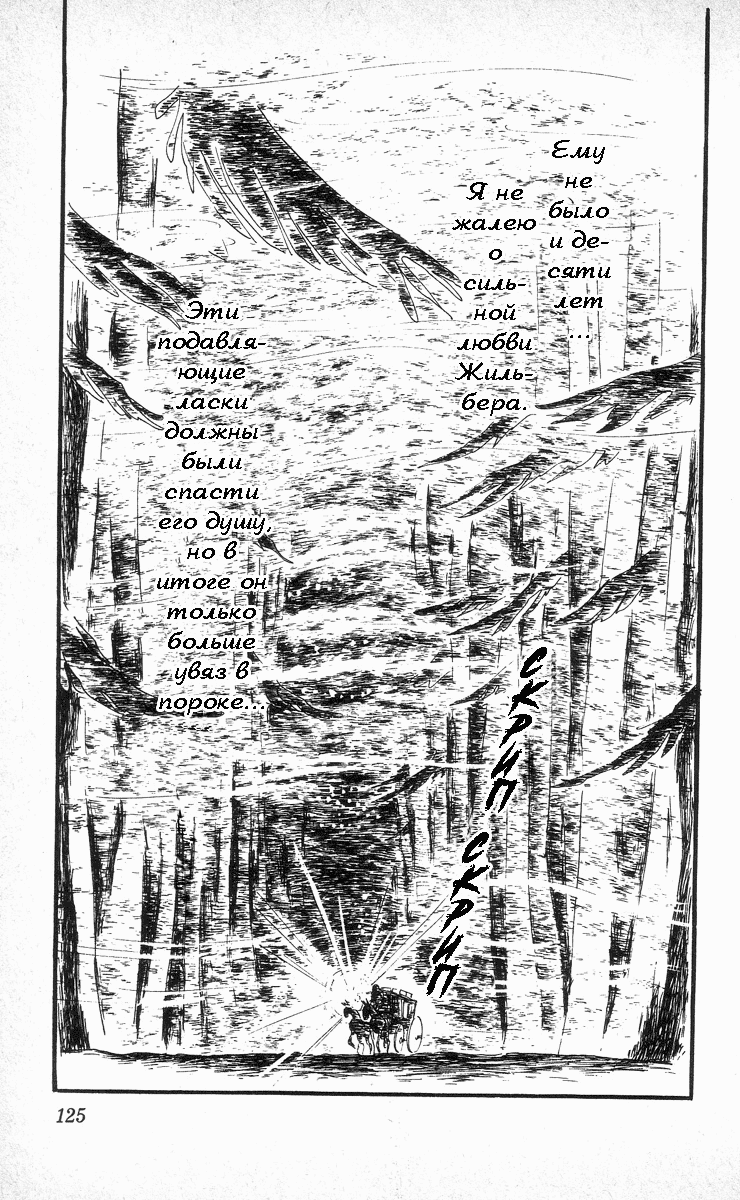 Ему
не
было
и де-
сяти
лет
...
Я не
жалею
о
силь-
ной
любви
Жиль-
бера.
Эти
подавля-
ющие
ласки
должны
были
спасти
его душу,
но в
итоге он
только
больше
увяз в
пороке...
СКРИП
СКРИП
125